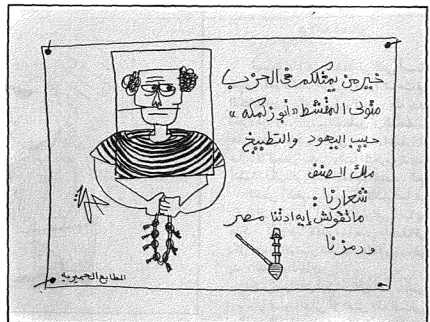 خير من يمثلكم في الحزب
متولى المقشط «أبو زلمكه»
حبيب اليهود والتطبيع
ملك الصنف
شعارنا:
ماتقولش إيه ادتنا مصر
ورمزنا
المطابع الحميرية